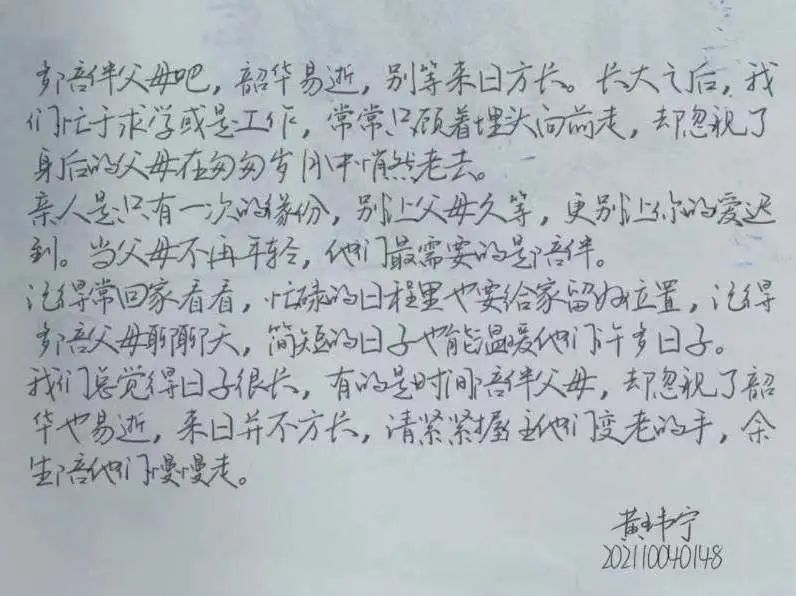 多陪伴父母吧，韶华易逝，别等来日方长。长大之后，我
们忙于求学或是工作，常常只顾着埋头向前走，却忽视了
身后的父母在匆匆岁月中悄然老去。
亲人是只有一次的缘份，别让父母久等，更别让你的爱迟
到。当父母不再年轻，他们最需要的是陪伴。
记得常回家看看，忙碌的日程里也要给家留好位置，记得
多陪父母聊聊天，简短的日子也能温暖他们许多日子。
我们总觉得日子很长，有的是时间陪伴父母，却忽视了韶
华也易逝，来日并不方长，请紧紧握住他们变老的手，余
生陪他们慢慢走。
黄玮宁
202110040148